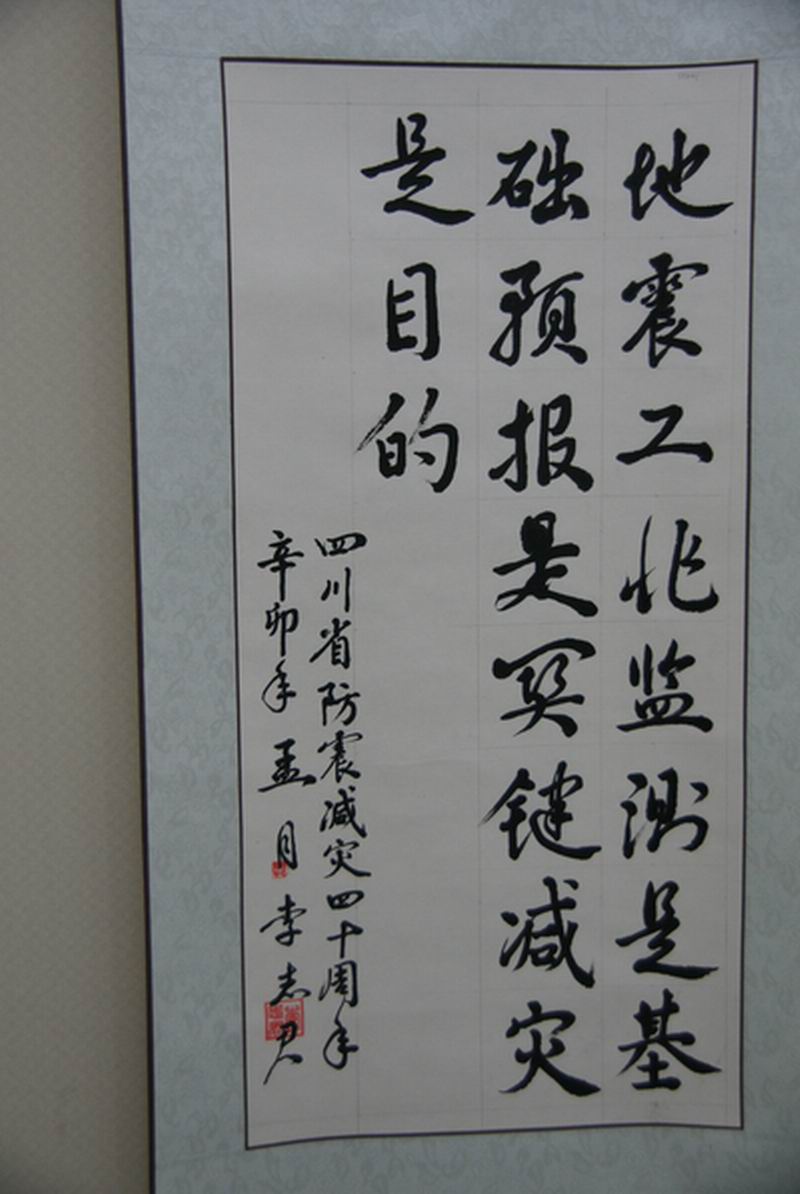 地震工作监测是基
础预报是关键减灾
是目的
四川省防震减灾四十周年
辛卯年孟月李志君